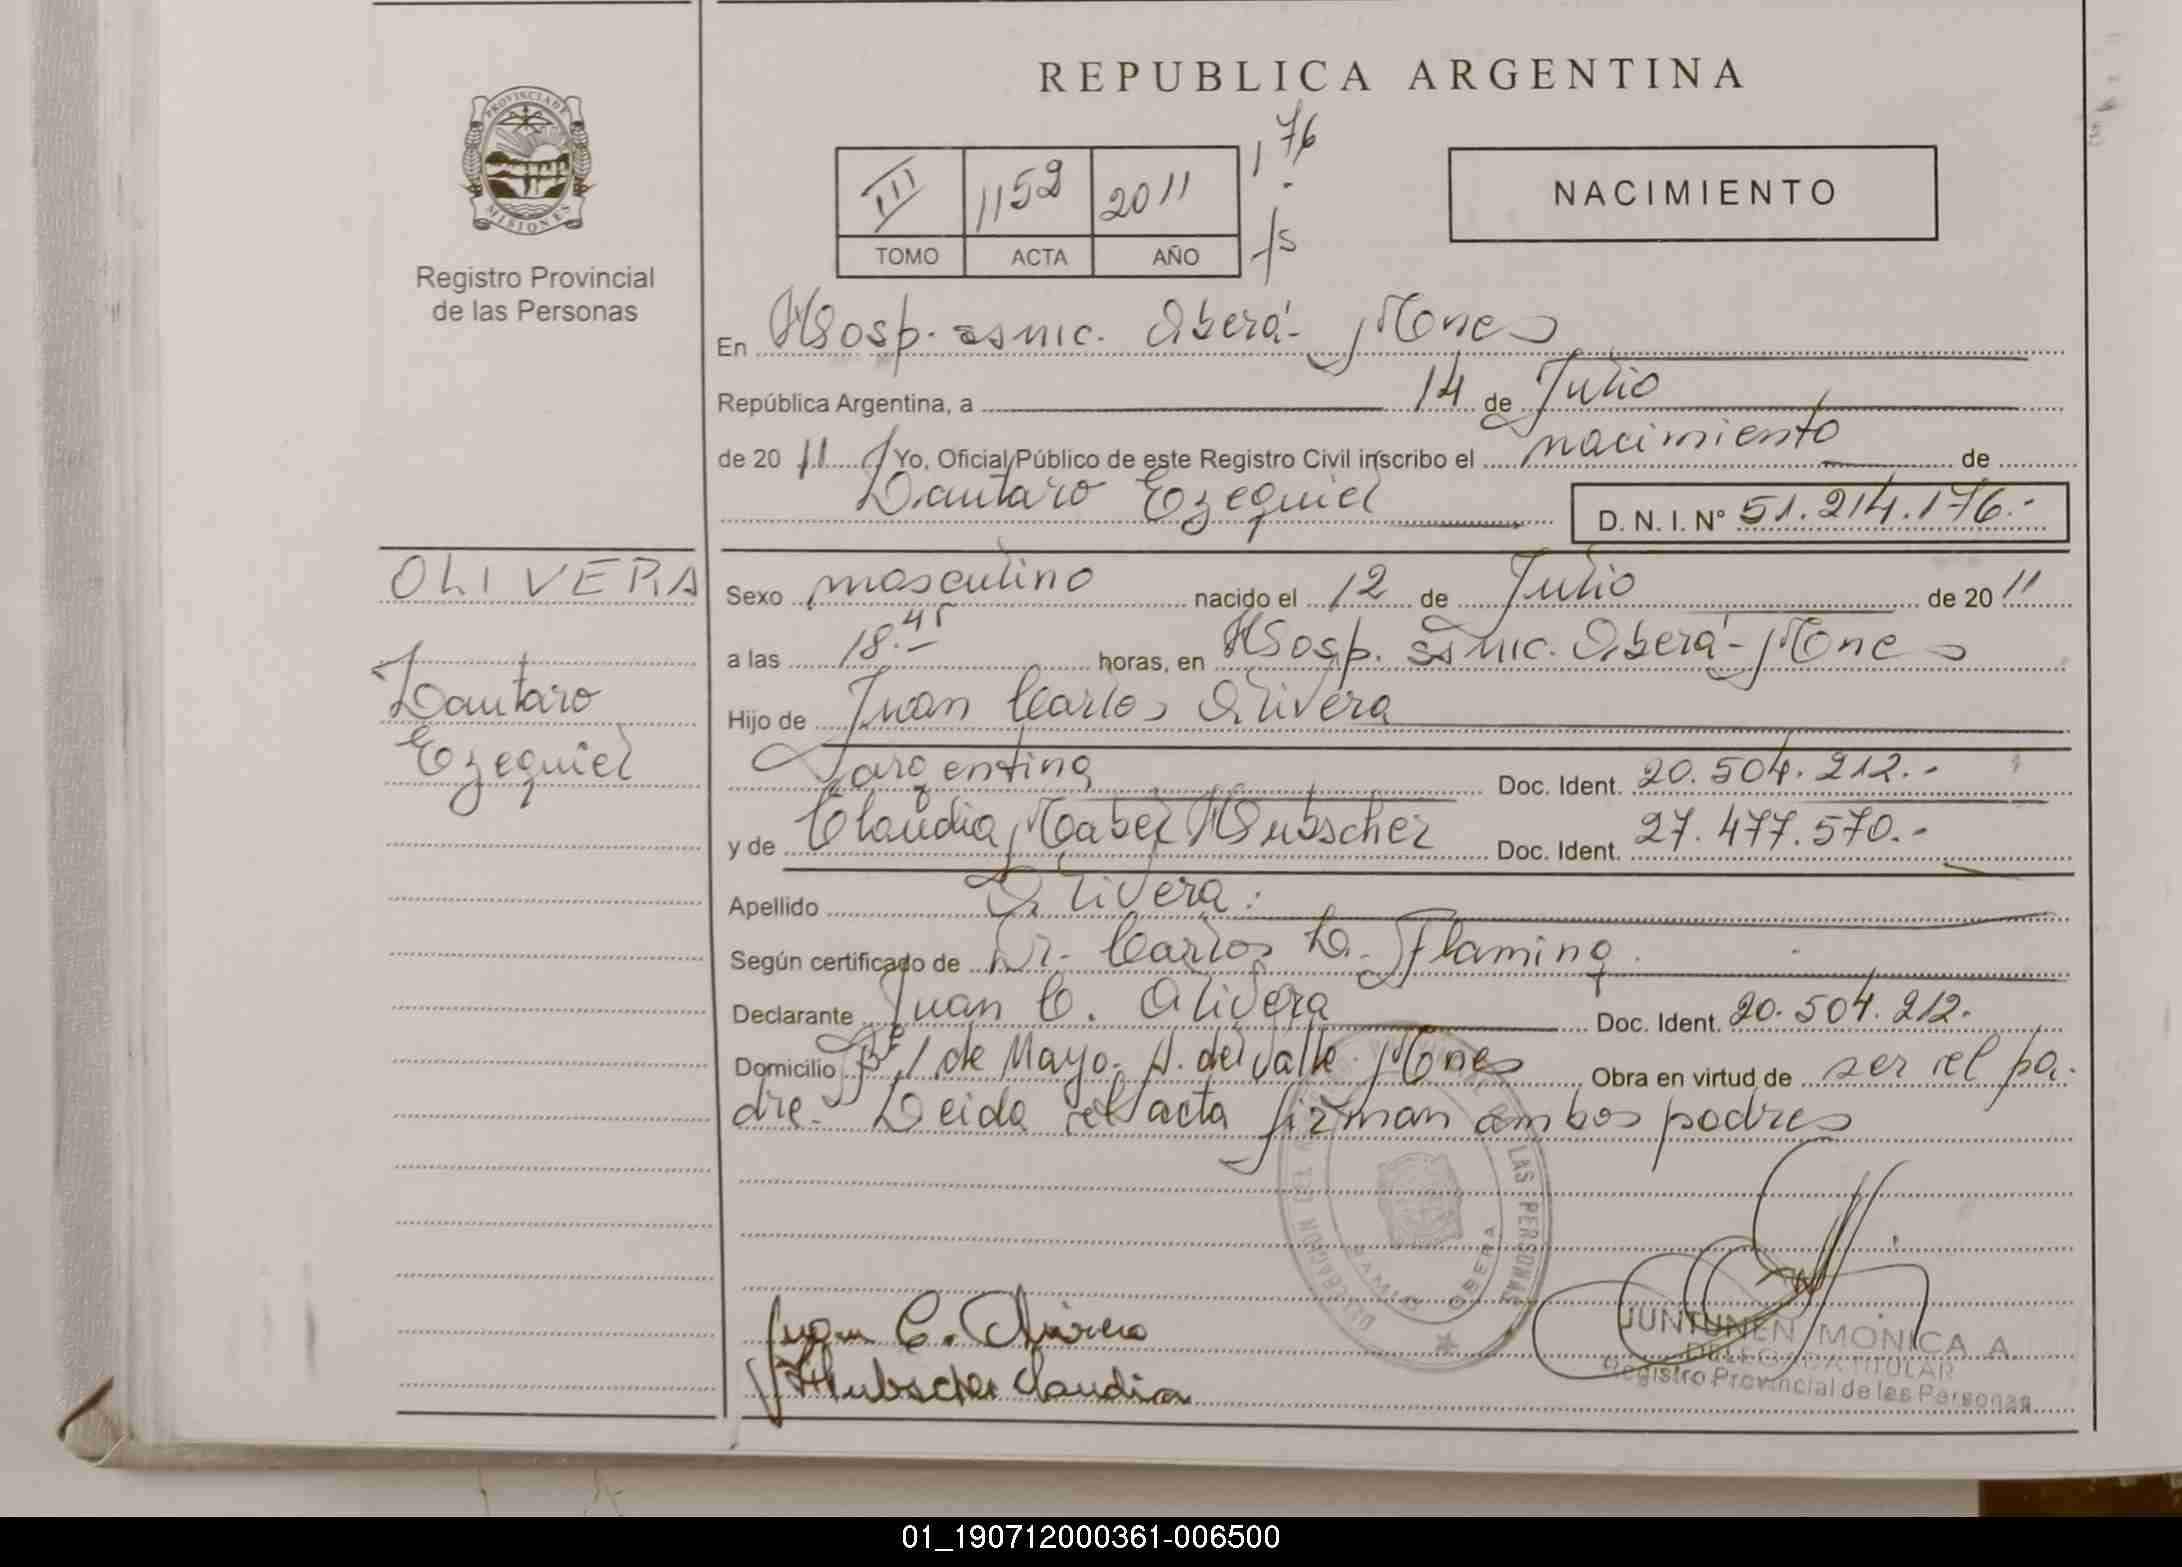 PROVINCIA DE
MISIONES
Registro Provincial
de las Personas
REPUBLICA ARGENTINA
III 1152 2011
TOMO ACTA AÑO
176
fs
NACIMIENTO
En Hosp. Oberá - Mnes
República Argentina, a 14 de Julio
de 20 11 Yo, Oficial Público de este Registro Civil inscribo el nacimiento de
Lautaro Ezequiel D. N. I. N° 51.214.176.-
OLIVERA
Lautaro
Ezequiel
Sexo masculino nacido el 12 de Julio de 20 11
a las 18.45 horas, en Hosp. Oberá - Mnes
Hijo de Juan Carlos Olivera
argentina Doc. Ident. 20.504.212.-
y de Claudia Mabel Hubscher Doc. Ident. 27.477.570.-
Apellido Olivera:
Según certificado de Dr. Carlos L. Flaming.
Declarante Juan C. Olivera Doc. Ident. 20.504.212.
Domicilio B° 1 de Mayo. A. del Valle. Mnes Obra en virtud de ser el pa-
dre. Leida el acta firman ambos padres
LAS PERSONAS
OBERA
Juan C. Olivera
Hubscher Claudia
JUNTUNEN MONICA A.
DELEGADA TITULAR
Registro Provincial de las Personas
01_190712000361-006500